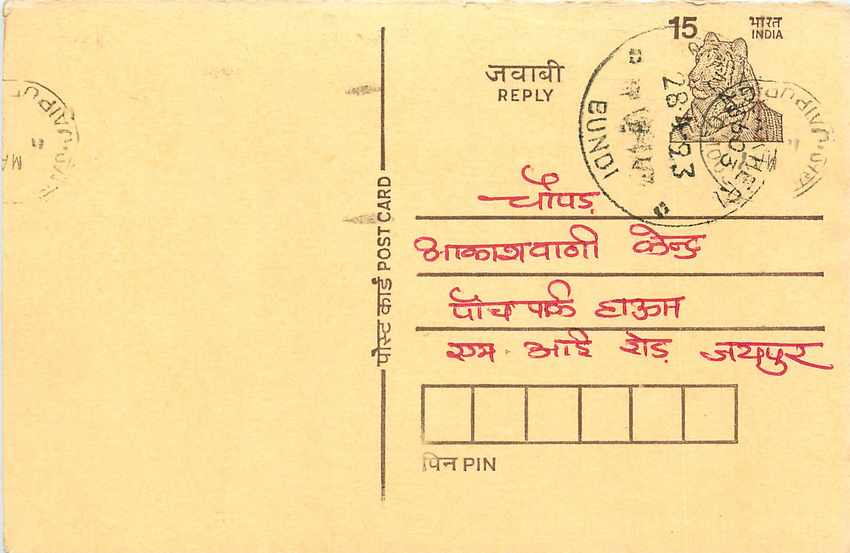 15 भारत
INDIA
जवाबी
REPLY
BUNDI
28·
93
JAIPUR
MA
JAIPUR
पोस्ट कार्ड POST CARD
चौपड़
आकाशवाणी केन्द्र
पाँच पार्क हाऊस
एम. आई रोड़ जयपुर
पिन PIN